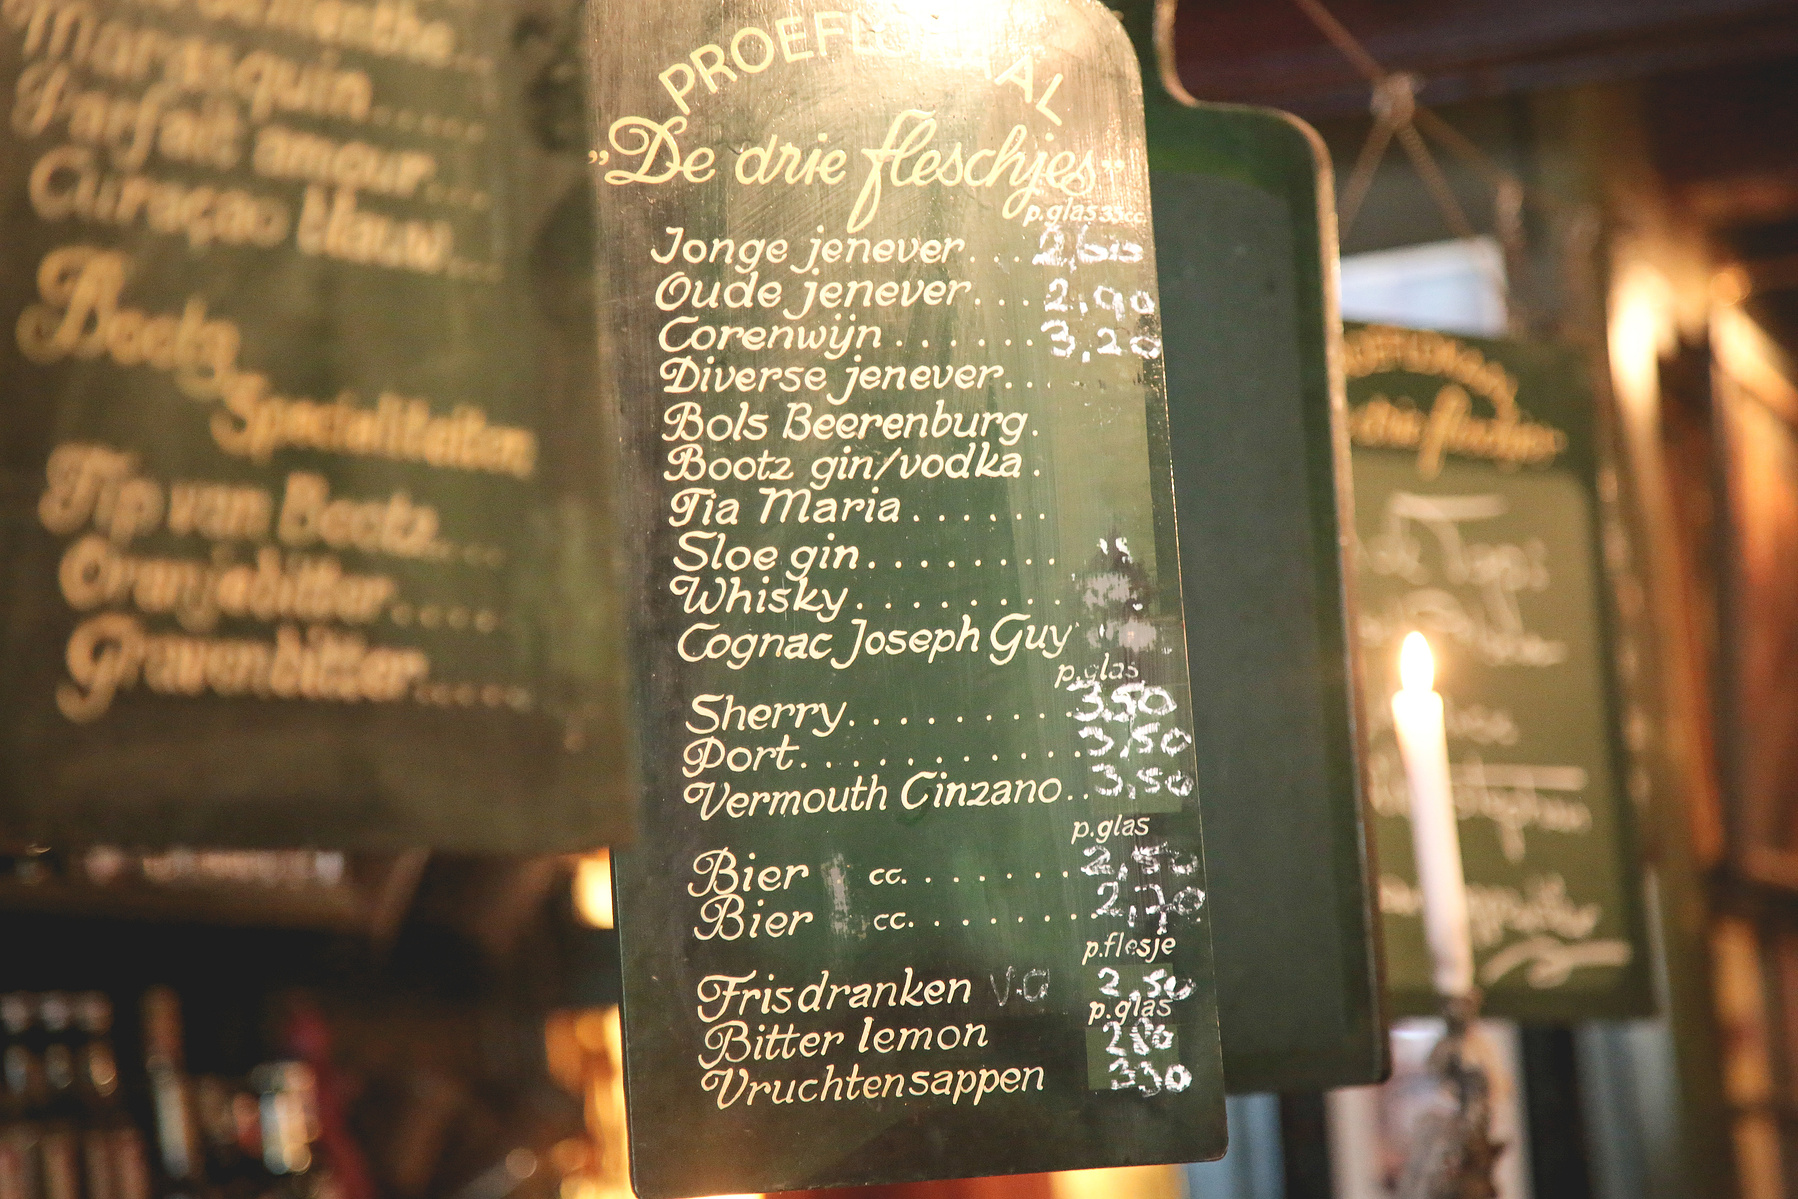 Marasquin......
Parfait amour....
Curaçao blauw...
Bootz
Specialiteiten
Tip van Bootz....
Oranjebitter.....
Gravenbitter.....
PROEFLOKAAL
„De drie fleschjes”
p.glas 35cc.
Jonge jenever...
Oude jenever... 2,90
Corenwijn....... 3,20
Diverse jenever...
Bols Beerenburg.
Bootz gin/vodka.
Tia Maria......
Sloe gin........
Whisky........
Cognac Joseph Guy
p.glas
Sherry.......... 3,50
Port............ 3,50
Vermouth Cinzano.. 3,50
p.glas
Bier cc........ 2,50
Bier cc........ 2,70
p.flesje
Frisdranken V.a 2,50
p.glas
Bitter lemon 280
Vruchtensappen 330